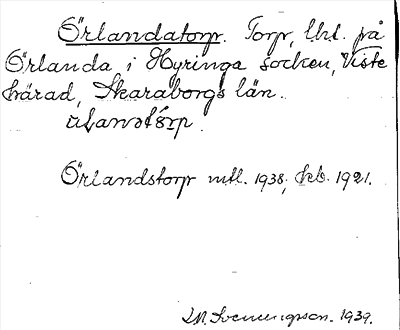 Örlandatorp. Torp, lht. på
Örlanda i Hyringa socken, Viste
härad, Skaraborgs län.
Örlandstorp mtl. 1938; kb. 1921.
1939.